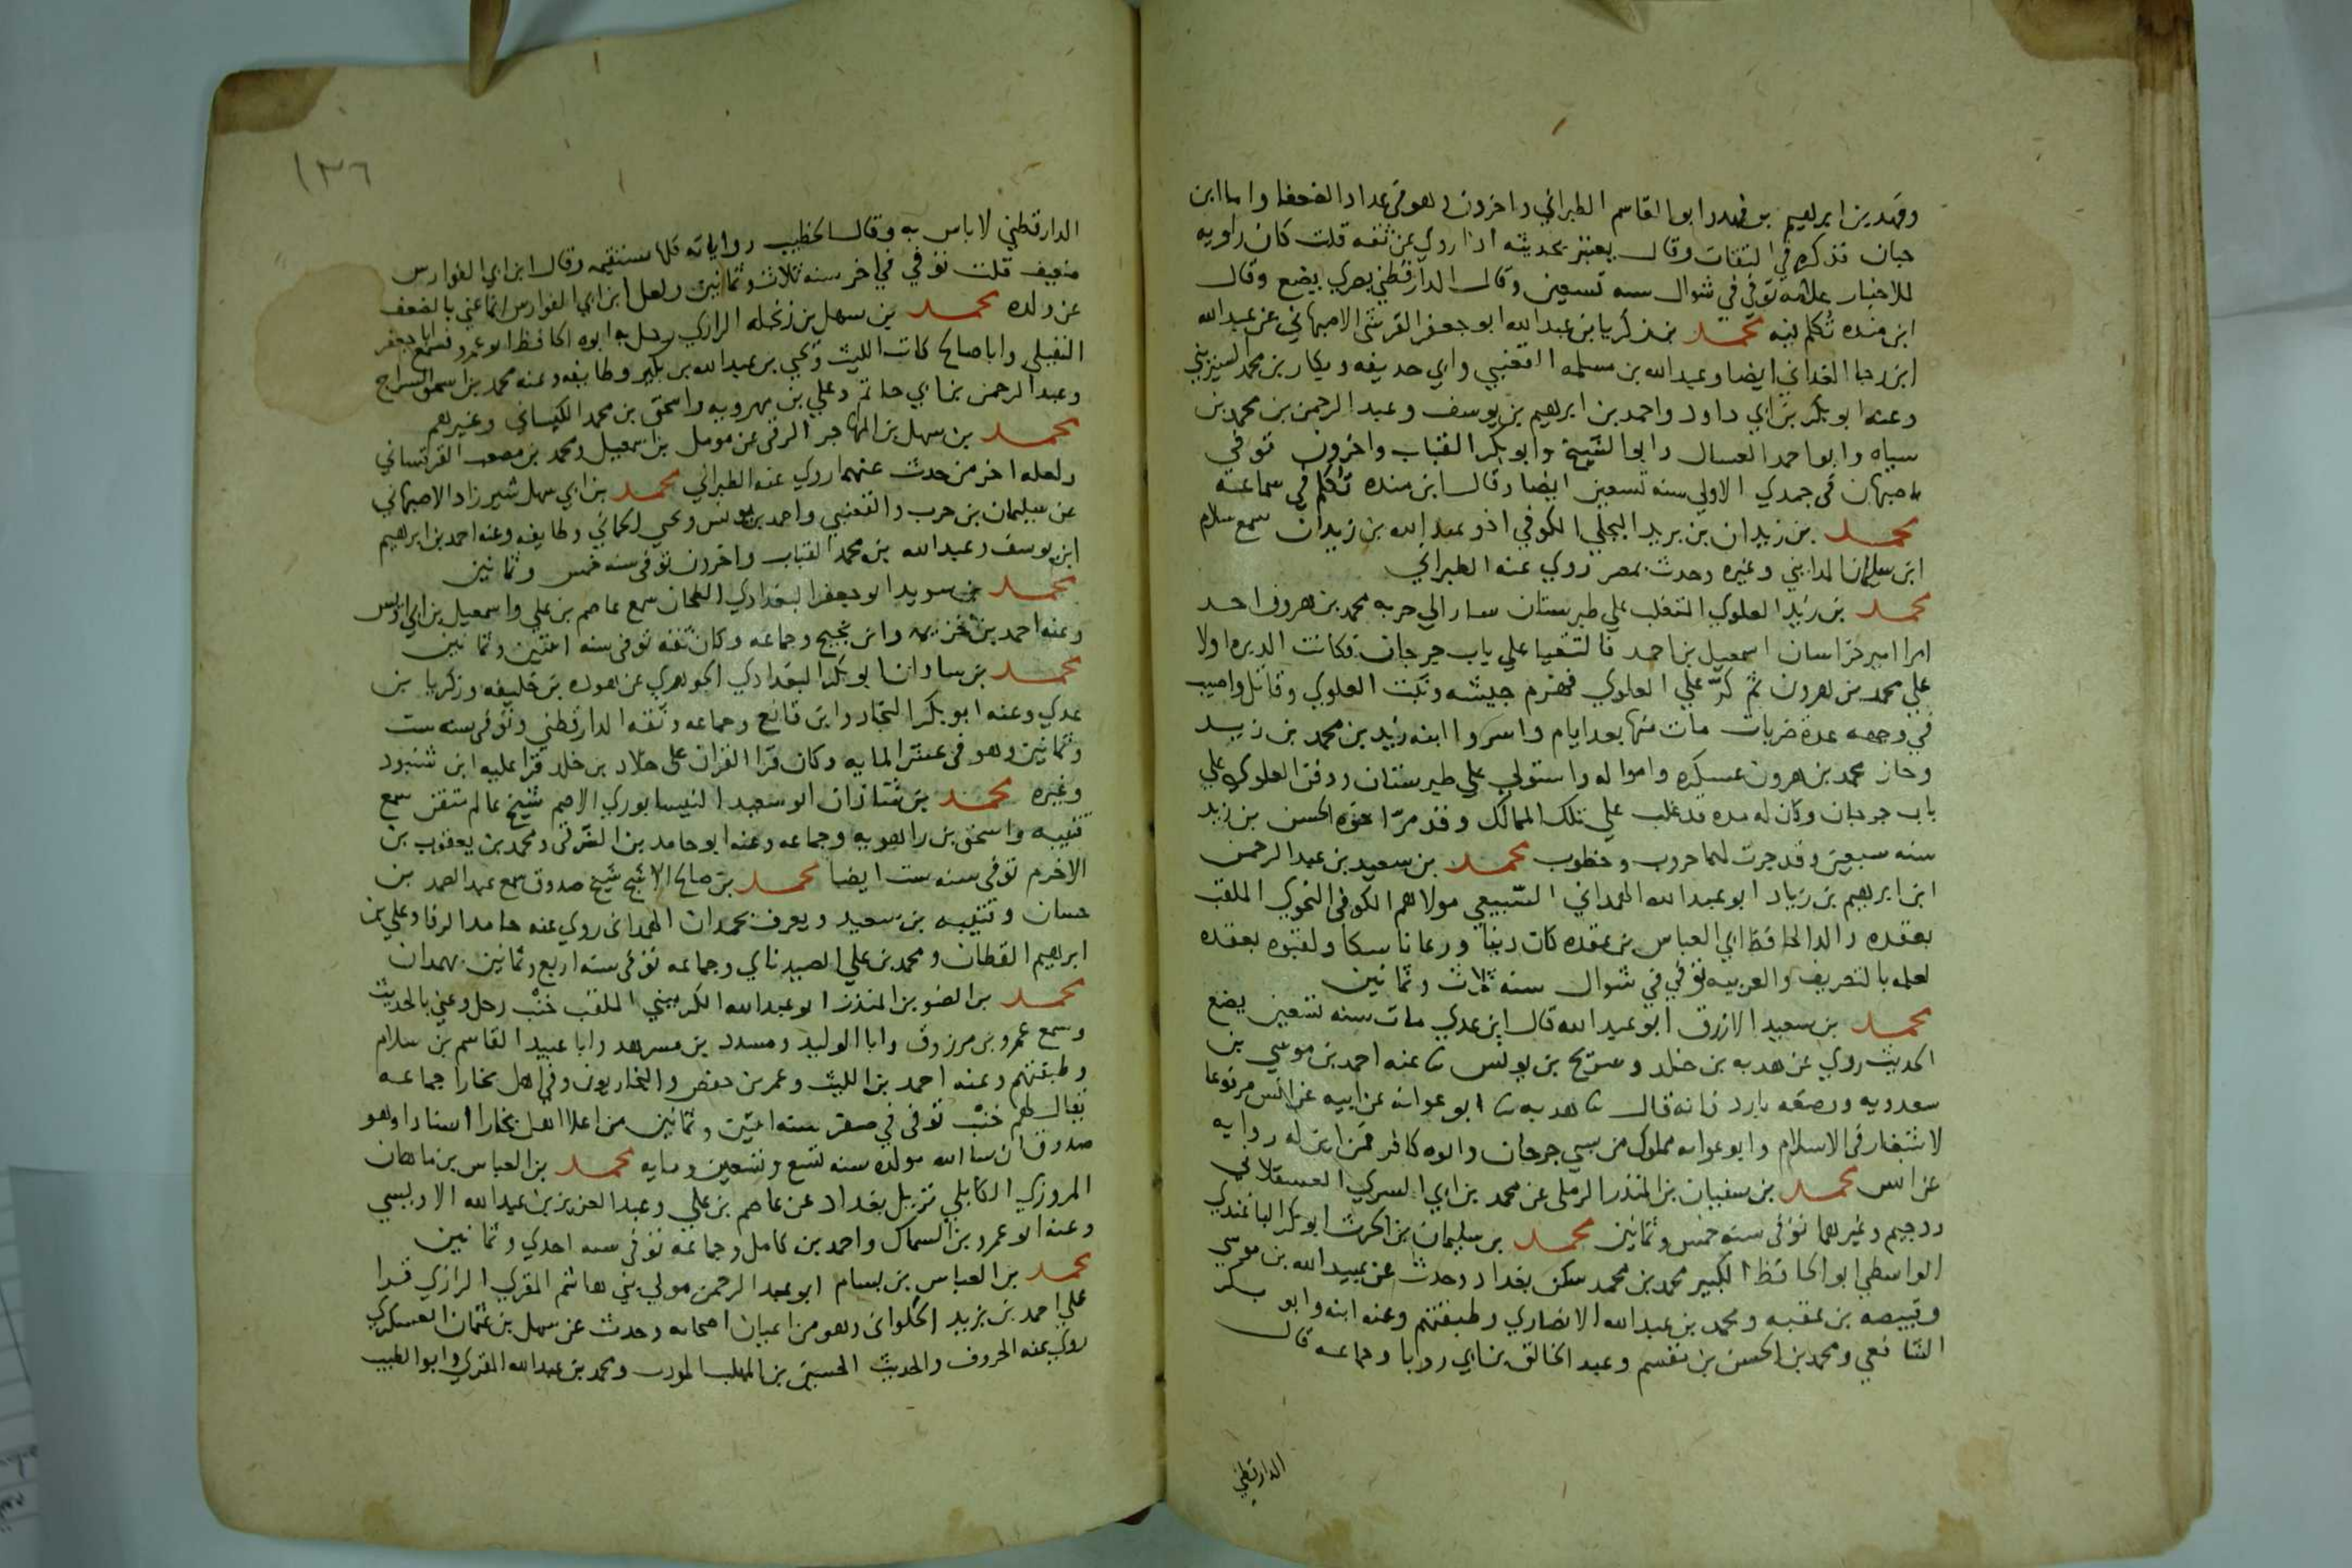 وفهد بن ابرهيم بن فهد وابو القاسم الطبراني واخرون وهو في عداد الضعفا واما ابن
حبان فذكره في الثقات وقال يعتبر بحديثه اذا روي عن ثقه قلت كان راويه
للاخبار علامه توفي في شوال سنه تسعين وقال الدارقطني بصري يضع وقال
ابن منده تُكلم فيه محمد بن زكريا بن عبد الله ابو جعفر القرشي الاصبهاني عن عبد الله
ابن رجا الغداني ايضا وعبد الله بن مسلمه القعنبي وابي حذيفه وبكار بن محمد السيريني
وعنه ابو بكر بن ابي داود واحمد بن ابرهيم بن يوسف وعبد الرحمن بن محمد بن
سياه وابو احمد العسال وابو الشيخ وابو بكر القباب واخرون توفي
باصبهان في جمدي الاولي سنه تسعين ايضا وقال ابن منده تُكلم في سماعه
محمد بن زيدان بن يزيد البجلي الكوفي اخو عبد الله بن زيدان سمع سلام
ابن سليمان المدايني وغيره وحدث بمصر روي عنه الطبراني
محمد بن زيد العلوي المتغلب علي طبرستان سار الي حربه محمد بن هرون احد
امرا امير خراسان اسمعيل بن احمد فالتقيا علي باب جرجان فكانت الدبره اولا
علي محمد بن هرون ثم كرّ علي العلوي فهزم جيشه وثبت العلوي وقاتل واصيب
في وجهه عدة ضربات مات منها بعد ايام واسروا ابنه زيد بن محمد بن زيد
وحاز محمد بن هرون عسكره وامواله واستولي علي طبرستان ودفن العلوي علي
باب جرجان وكان له مده قد غلب علي تلك الممالك وقد مرّ اخوه الحسن بن زيد
سنه سبعين وقد جرت لهما حروب وخطوب محمد بن سعيد بن عبد الرحمن
ابن ابرهيم بن زياد ابو عبد الله الهمداني السّبيعي مولاهم الكوفي النحوي الملقب
بعقده والد الحافظ ابي العباس بن عقده كان دينا ورعا ناسكا ولقبوه بعقده
لعلمه بالتصريف والعربيه توفي في شوال سنه ثلاث وثمانين
محمد بن سعيد الازرق ابو عبد الله قال ابن عدي مات سنه تسعين يضع
الحديث روي عن هدبه بن خلد وسريج بن يونس ثنا عنه احمد بن موسي بن
سعدويه ووصفه بارد فانه قال ثنا هدبه ثنا ابو عوانه عن ابيه عن انس مرفوعا
لا شغار في الاسلام وابو عوانه مملوك من سبي جرجان وابوه كافر فمن اين له روايه
عن انس محمد بن سفيان بن المنذر الرملي عن محمد بن ابي السري العسقلاني
ودحيم وغيرهما توفي سنه خمس وثمانين محمد بن سليمان بن الحرث ابو بكر الباغندي
الواسطي ابو الحافظ الكبير محمد بن محمد سكن بغداد وحدث عن عبيد الله بن موسي
وقبيصه بن عقبه ومحمد بن عبد الله الانصاري وطبقتهم وعنه ابنه وابو بكر
الشافعي ومحمد بن الحسن بن مقسم وعبد الخالق بن ابي روبا وجماعه قال
الدارقطني
١٣٦
الدارقطني لا باس به وقال الخطيب رواياته كلها مستقيمه وقال ابن ابي الفوارس
ضعيف قلت توفي في اخر سنه ثلاث وثمانين ولعل ابن ابي الفوارس انما عني بالضعف
عن ولده محمد بن سهل بن زنجله الرازي رحل به ابوه الحافظ ابو عمرو فسمع ابا جعفر
النفيلي وابا صالح كاتب الليث ويحيي بن عبد الله بن بكير وطايفه وعنه محمد بن اسحق السراج
وعبد الرحمن بن ابي حاتم وعلي بن مهرويه واسحق بن محمد الكيساني وغيرهم
محمد بن سهل بن المهاجر الرقي عن مومل بن اسمعيل ومحمد بن مصعب القرقساني
ولعله اخر من حدث عنهما روي عنه الطبراني محمد بن ابي سهل شيرزاد الاصبهاني
عن سليمان بن حرب والقعنبي واحمد بن يونس ويحيي الحماني وطايفه وعنه احمد بن ابرهيم
ابن يوسف وعبد الله بن محمد القباب واخرون توفي سنه خمس وثمانين
محمد بن سويد ابو جعفر البغدادي الطحان سمع عاصم بن علي واسمعيل بن ابي اويس
وعنه احمد بن خزيمه وابن نجيح وجماعه وكان ثقه توفي سنه اثنتين وثمانين
محمد بن شاذان ابو بكر البغدادي الجوهري عن هوذه بن خليفه وزكريا بن
عدي وعنه ابو بكر النجاد وابن قانع وجماعه وثقه الدارقطني وتوفي سنه ست
وثمانين وهو في عشر المايه وكان قرا القران علي خلاد بن خلد قرا عليه ابن شنبوذ
وغيره محمد بن شاذان ابو سعيد النيسابوري الاصم شيخ عالم متقن سمع
قتيبه واسحق بن راهويه وجماعه وعنه ابو حامد بن الشرقي ومحمد بن يعقوب بن
الاخرم توفي سنه ست ايضا محمد بن صالح الاشج شيخ صدوق سمع عبد الصمد بن
حسان وقتيبه بن سعيد ويعرف بحمدان الهمداني روي عنه حامد الرفا وعلي بن
ابرهيم القطان ومحمد بن علي الصيدناي وجماعه توفي سنه اربع وثمانين بهمدان
محمد بن الضو بن المنذر ابو عبد الله الكرميني الملقب خنْب رحل وعني بالحديث
وسمع عمرو بن مرزوق وابا الوليد ومسدد بن مسرهد وابا عبيد القاسم بن سلام
وطبقتهم وعنه احمد بن الليث وعمر بن حفص والبخاريون وفي اهل بخارا جماعه
يقال لهم خنْب توفي في صفر سنه اثنتين وثمانين من اعلا اهل بخارا اسنادا وهو
صدوق ان شا الله مولده سنه تسع وتسعين ومايه محمد بن العباس بن ماهان
المروزي الكابلي نزيل بغداد عن عاصم بن علي وعبد العزيز بن عبد الله الاويسي
وعنه ابو عمرو بن السماك واحمد بن كامل وجماعه توفي سنه احدي وثمانين
محمد بن العباس بن بسام ابو عبد الرحمن مولي بني هاشم المقري الرازي قرا
علي احمد بن يزيد الحلواني وهو من اعيان اصحابه وحدث عن سهل بن عثمان العسكري
روي عنه الحروف والحديث الحسين بن المهلب المودب ومحمد بن عبد الله المقري وابو الطيب